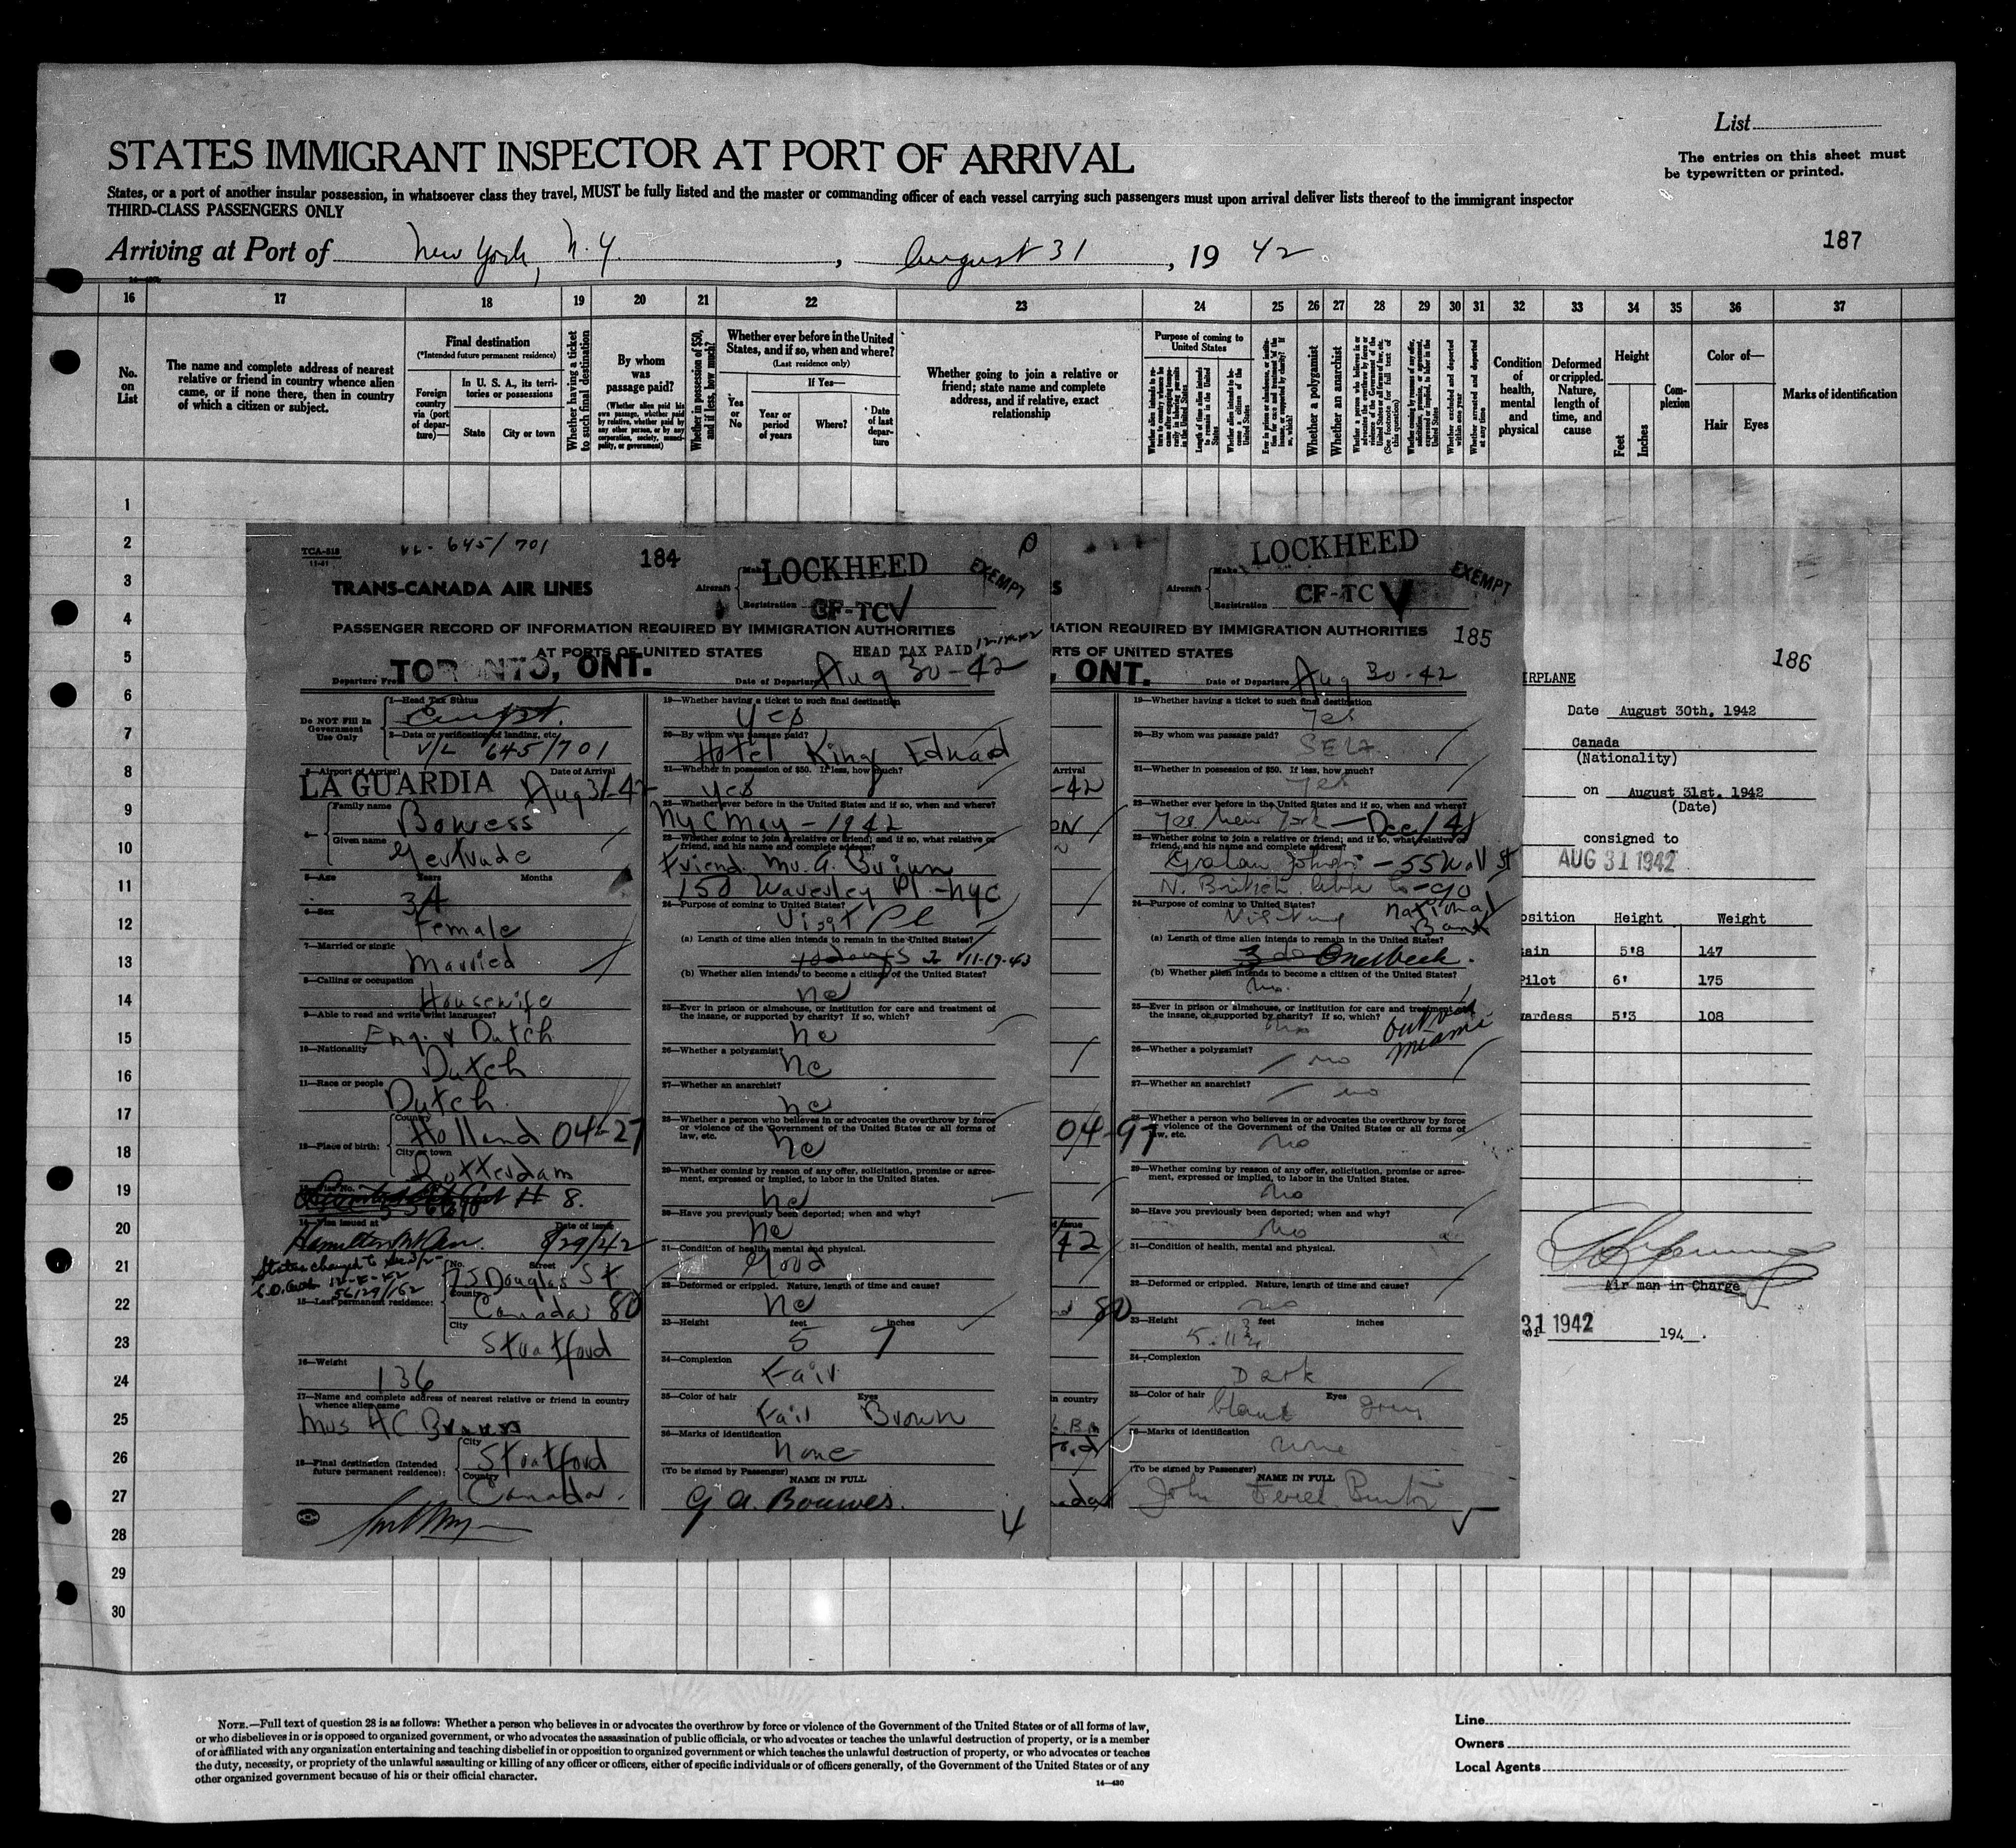 List
STATES IMMIGRANT INSPECTOR AT PORT OF ARRIVAL
The entries on this sheet must
be typewritten or printed.
States, or a port of another insular possession, in whatsoever class they travel, MUST be fully listed and the master or commanding officer of each vessel carrying such passengers must upon arrival deliver lists thereof to the immigrant inspector
THIRD-CLASS PASSENGERS ONLY
Arriving at Port of New York, N.Y. , August 31 , 19 42
187
16 17 18 19 20 21 22 23 24 25 26 27 28 29 30 31 32 33 34 35 36 37
No.
on
List
The name and complete address of nearest
relative or friend in country whence alien
came, or if none there, then in country
of which a citizen or subject.
Final destination
(*Intended future permanent residence)
Foreign
country
via (port
of depar-
ture)—
In U. S. A., its terri-
tories or possessions
State
City or town
Whether having a ticket
to such final destination
By whom
was
passage paid?
(Whether alien paid his
own passage, whether paid
by relative, whether paid by
any other person, or by any
corporation, society, munici-
pality, or government)
Whether in possession of $50,
and if less, how much?
Whether ever before in the United
States, and if so, when and where?
(Last residence only)
Yes
or
No
If Yes—
Year or
period
of years
Where?
Date
of last
depar-
ture
Whether going to join a relative or
friend; state name and complete
address, and if relative, exact
relationship
Purpose of coming to
United States
Whether a polygamist
Whether an anarchist
Condition
of
health,
mental
and
physical
Deformed
or crippled.
Nature,
length of
time, and
cause
Height
Feet
Inches
Com-
plexion
Color of—
Hair
Eyes
Marks of identification
1
2
3
4
5
6
7
8
9
10
11
12
13
14
15
16
17
18
19
20
21
22
23
24
25
26
27
28
29
30
TCA-518
11-41
645/701
184
TRANS-CANADA AIR LINES
Aircraft
Make LOCKHEED
Registration CF-TCV
EXEMPT
PASSENGER RECORD OF INFORMATION REQUIRED BY IMMIGRATION AUTHORITIES
AT PORTS OF UNITED STATES
HEAD TAX PAID
TORONTO, ONT.
Date of Departure Aug 30-42
Do NOT Fill In
Government
Use Only
1—Head Tax Status
2—Data or verification of landing, etc.
V/L 645/701
3—Airport of Arrival
Date of Arrival
LA GUARDIA Aug 31-42
Family name
Bowess
Given name
Gertrude
5—Age Years Months
34
6—Sex
Female
7—Married or single
Married
8—Calling or occupation
Housewife
9—Able to read and write what languages?
Eng. & Dutch
10—Nationality
Dutch
11—Race or people
Dutch
12—Place of birth:
Country
Holland 04-27
City or town
Rotterdam
# 8.
14—Visa issued at
Date of issue
Hamilton 8/29/42
Status changed to
56129/162
15—Last permanent residence:
No. Street
75 Douglas St
Country
Canada 80
City
Stratford
16—Weight
136
17—Name and complete address of nearest relative or friend in country
whence alien came
Mrs HC
18—Final destination (Intended
future permanent residence):
City
Stratford
Country
Canada.
19—Whether having a ticket to such final destination
Yes
20—By whom was passage paid?
Hotel King Edward
21—Whether in possession of $50. If less, how much?
Yes
22—Whether ever before in the United States and if so, when and where?
NYC May - 1942
23—Whether going to join a relative or friend; and if so, what relative or
friend, and his name and complete address?
Friend. Mr. A. Bruin
150 Waverley Pl - NYC
24—Purpose of coming to United States?
Visit
(a) Length of time alien intends to remain in the United States?
10 days 11-19-43
(b) Whether alien intends to become a citizen of the United States?
no
25—Ever in prison or almshouse, or institution for care and treatment of
the insane, or supported by charity? If so, which?
no
26—Whether a polygamist?
no
27—Whether an anarchist?
no
28—Whether a person who believes in or advocates the overthrow by force
or violence of the Government of the United States or all forms of
law, etc.
no
29—Whether coming by reason of any offer, solicitation, promise or agree-
ment, expressed or implied, to labor in the United States.
no
30—Have you previously been deported; when and why?
no
31—Condition of health, mental and physical.
Good
32—Deformed or crippled. Nature, length of time and cause?
no
33—Height feet inches
5 7
34—Complexion
Fair
35—Color of hair Eyes
Fair Brown
36—Marks of identification
none
(To be signed by Passenger) NAME IN FULL
G A. Bouwes.
Aircraft
Make LOCKHEED
Registration CF-TC V
EXEMPT
MATION REQUIRED BY IMMIGRATION AUTHORITIES
185
RTS OF UNITED STATES
, ONT.
Date of Departure Aug 30-42
19—Whether having a ticket to such final destination
Yes
20—By whom was passage paid?
SELF
21—Whether in possession of $50. If less, how much?
Yes
22—Whether ever before in the United States and if so, when and where?
Yes New York - Dec/41
23—Whether going to join a relative or friend; and if so, what relative or
friend, and his name and complete address?
- 55 Wall St
N. British
24—Purpose of coming to United States?
Visiting National
Bank
(a) Length of time alien intends to remain in the United States?
One Week.
(b) Whether alien intends to become a citizen of the United States?
no.
25—Ever in prison or almshouse, or institution for care and treatment of
the insane, or supported by charity? If so, which?
no
Miami
26—Whether a polygamist?
no
27—Whether an anarchist?
no
04-97
28—Whether a person who believes in or advocates the overthrow by force
or violence of the Government of the United States or all forms of
law, etc.
no
29—Whether coming by reason of any offer, solicitation, promise or agree-
ment, expressed or implied, to labor in the United States.
no
30—Have you previously been deported; when and why?
no
31—Condition of health, mental and physical.
32—Deformed or crippled. Nature, length of time and cause?
no
80
33—Height feet inches
34—Complexion
Dark
35—Color of hair Eyes
black grey
36—Marks of identification
none
(To be signed by Passenger) NAME IN FULL
John
186
IRPLANE
Date August 30th, 1942
Canada
(Nationality)
on August 31st. 1942
(Date)
consigned to
AUG 31 1942
osition Height Weight
ain 5'8 147
Pilot 6' 175
ardess 5'3 108
Air man in Charge
31 1942 194 .
NOTE.—Full text of question 28 is as follows: Whether a person who believes in or advocates the overthrow by force or violence of the Government of the United States or of all forms of law,
or who disbelieves in or is opposed to organized government, or who advocates the assassination of public officials, or who advocates or teaches the unlawful destruction of property, or is a member
of or affiliated with any organization entertaining and teaching disbelief in or opposition to organized government or which teaches the unlawful destruction of property, or who advocates or teaches
the duty, necessity, or propriety of the unlawful assaulting or killing of any officer or officers, either of specific individuals or of officers generally, of the Government of the United States or of any
other organized government because of his or their official character.
14—430
Line
Owners
Local Agents